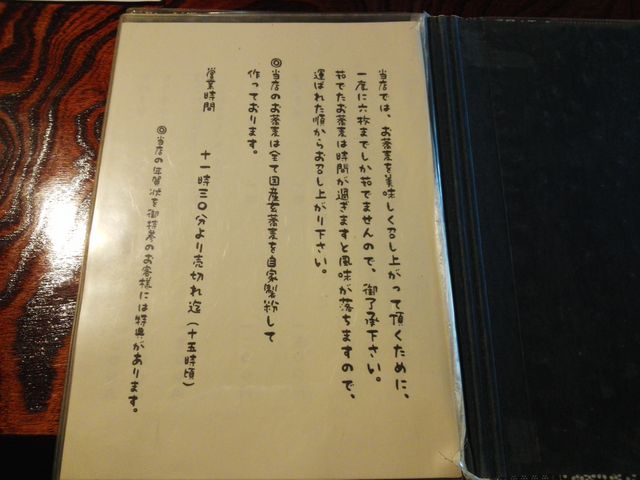 当店では、お蕎麦を美味しく召し上がって頂くために、
一度に六枚までしか茹でませんので、御了承下さい。
茹でたお蕎麦は時間が過ぎますと風味が落ちますので、
運ばれた順からお召し上がり下さい。
◎当店のお蕎麦は全て国産玄蕎麦を自家製粉して
作っております。
営業時間 十一時三〇分より売切れ迄（十五時頃）
◎当店の年賀状を御持参のお客様には特典があります。